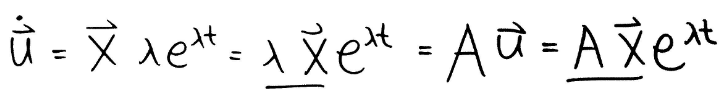 $\dot{\vec{u}} = \vec{X} \lambda e^{\lambda t} = \underline{\lambda \vec{X}} e^{\lambda t} = A \vec{u} = \underline{A \vec{X}} e^{\lambda t}$